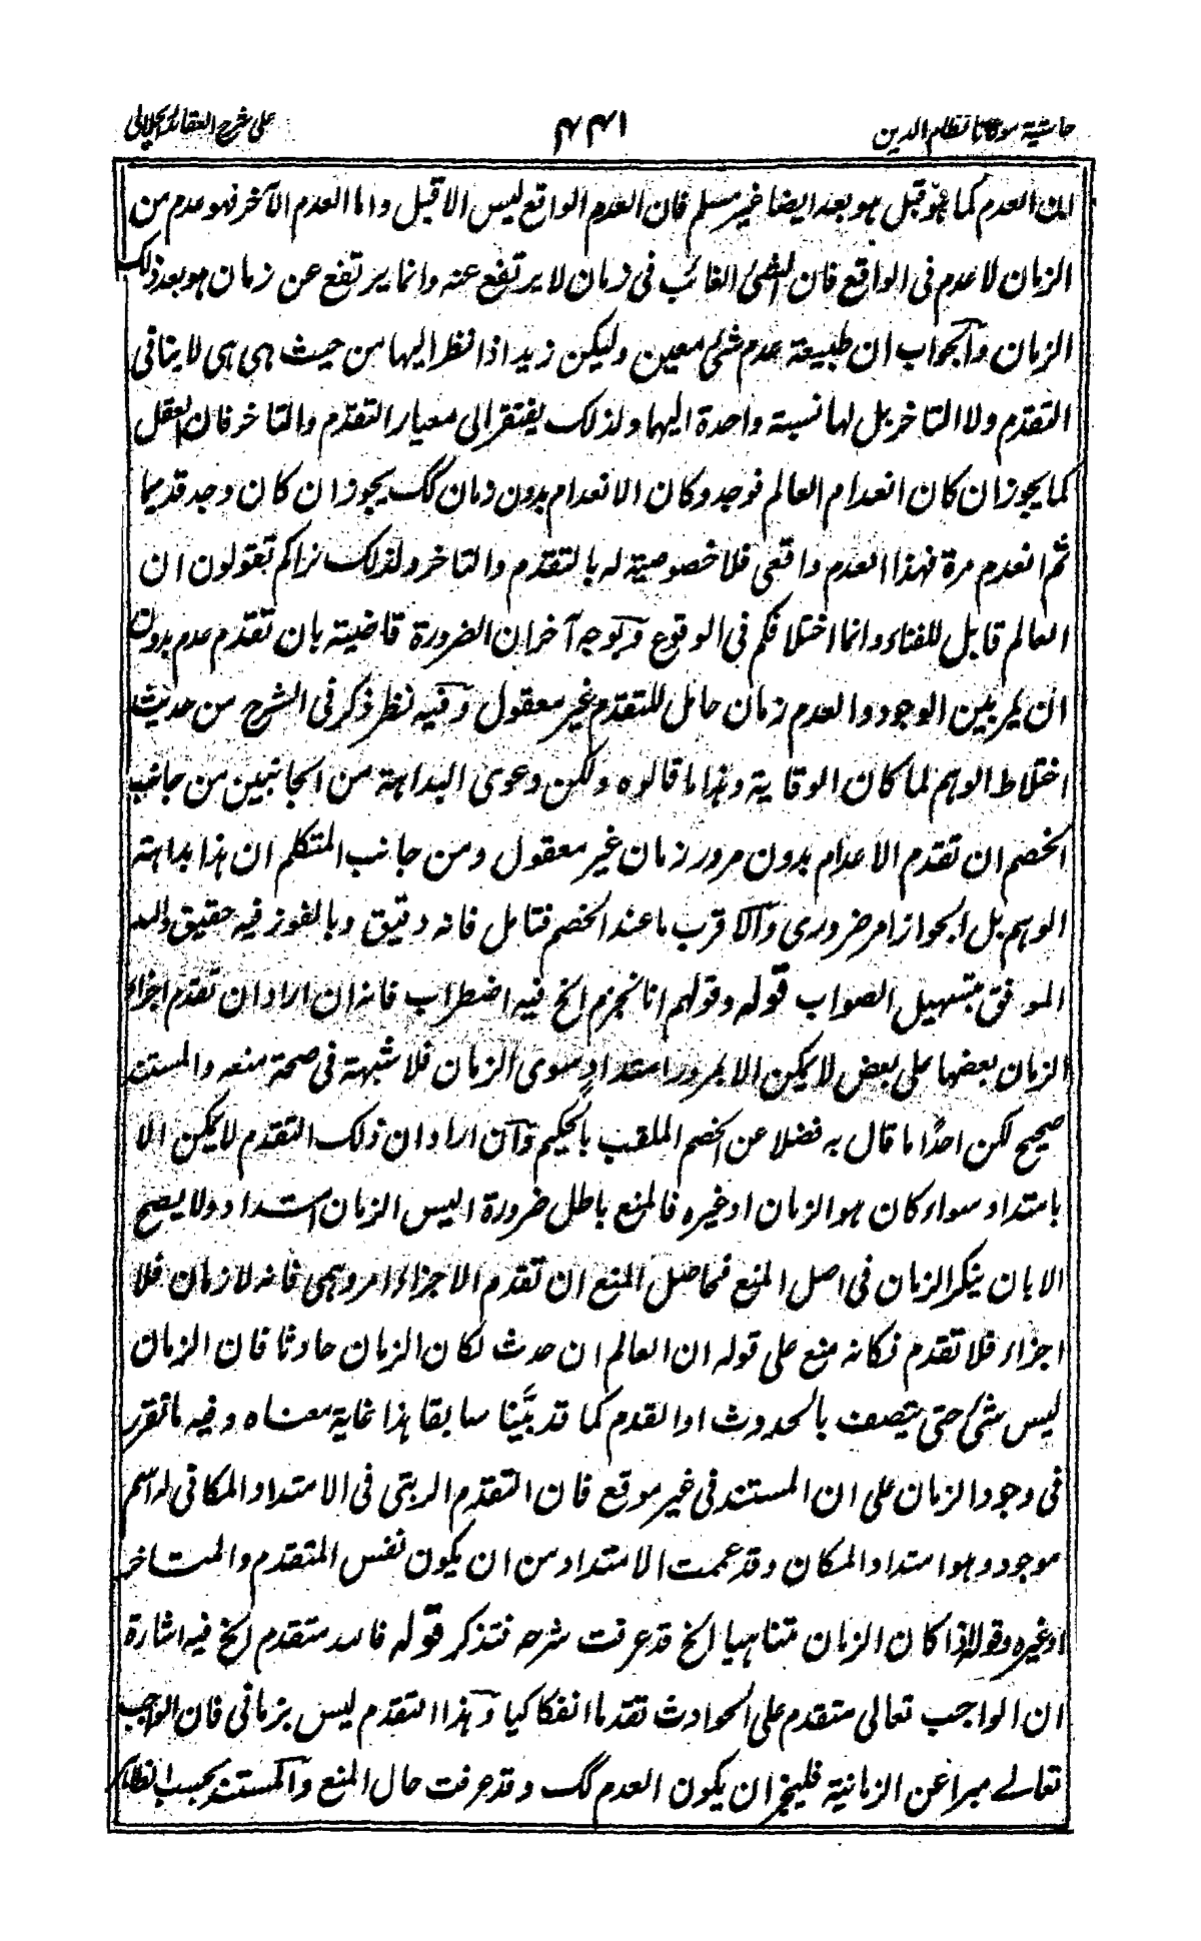 حاشية مولانا نظام الدين
٤٤١
على شرح العقائد الجلالى
ان العدم كما هو قبل هو بعد ايضا غير مسلم فان العدم الواقع ليس الا قبل واما العدم الآخر فهو عدم من
الزمان لا عدم فى الواقع فان الشئ الغائب فى زمان لا يرتفع عنه وانما يرتفع عن زمان هو بعد ذلك
الزمان والجواب ان طبيعة عدم شئ معين وليكن زيد اذا نظر اليها من حيث هى هى لا ينافى
التقدم ولا التاخر بل لها نسبة واحدة اليهما ولذلك يفتقر الى معيار التقدم والتاخر فان العقل
كما يجوز ان كان انعدام العالم فوجد وكان الانعدام بدون زمان كك يجوز ان كان وجد قديما
ثم انعدم مرة فهذا العدم واقعى فلا خصوصية له بالتقدم والتاخر ولذلك نراكم تقولون ان
العالم قابل للفناء وانما اختلافكم فى الوقوع وبوجه آخر ان الضرورة قاضية بان تقدم عدم بدون
ان يمر بين الوجود والعدم زمان حامل للتقدم غير معقول وفيه نظر ذكر فى الشرح من حديث
اختلاط الوهم لما كان الوقاية وهذا ما قالوه ولكن دعوى البداهة من الجانبين من جانب
الخصم ان تقدم الاعدام بدون مرور زمان غير معقول ومن جانب المتكلم ان هذا بداهة
الوهم بل الجواز امر ضرورى والاقرب ما عند الخصم فتامل فانه دقيق وبالفوز فيه حقيق والله
الموفق بتسهيل الصواب قوله وقولهم انا نجزم الخ فيه اضطراب فانه ان اراد ان تقدم اجزاء
الزمان بعضها على بعض لا يمكن الا بمرور امتداد سوى الزمان فلا شبهة فى صحة منعه والمستند
صحيح لكن احدًا ما قال به فضلا عن الخصم الملقب بالحكيم وان اراد ان ذلك التقدم لا يمكن الا
بامتداد سواء كان هو الزمان او غيره فالمنع باطل ضرورة اليس الزمان امتداد ولا يصح
الا بان ينكر الزمان فى اصل المنع فحاصل المنع ان تقدم الاجزاء امر وهمى فانه لا زمان فلا
اجزاء فلا تقدم فكانه منع على قوله ان العالم ان حدث لكان الزمان حادثا فان الزمان
ليس شئ حتى يتصف بالحدوث او القدم كما قد بيَّنا سابقا هذا غاية معناه وفيه ما تقرر
فى وجود الزمان على ان المستند فى غير موقع فان التقدم الرتبى فى الامتداد المكانى له اسم
موجود وهو امتداد المكان وقد عممت الامتداد من ان يكون نفس المتقدم والمتاخر
او غيره وقوله اذا كان الزمان متناهيا الخ قد عرفت شرحه فتذكر قوله فالله متقدم الخ فيه اشارة
ان الواجب تعالى متقدم على الحوادث تقدما انفكاكيا وهذا التقدم ليس بزمانى فان الواجب
تعالے مبرا عن الزمانية فليجز ان يكون العدم كك وقد عرفت حال المنع والمستند بحسب